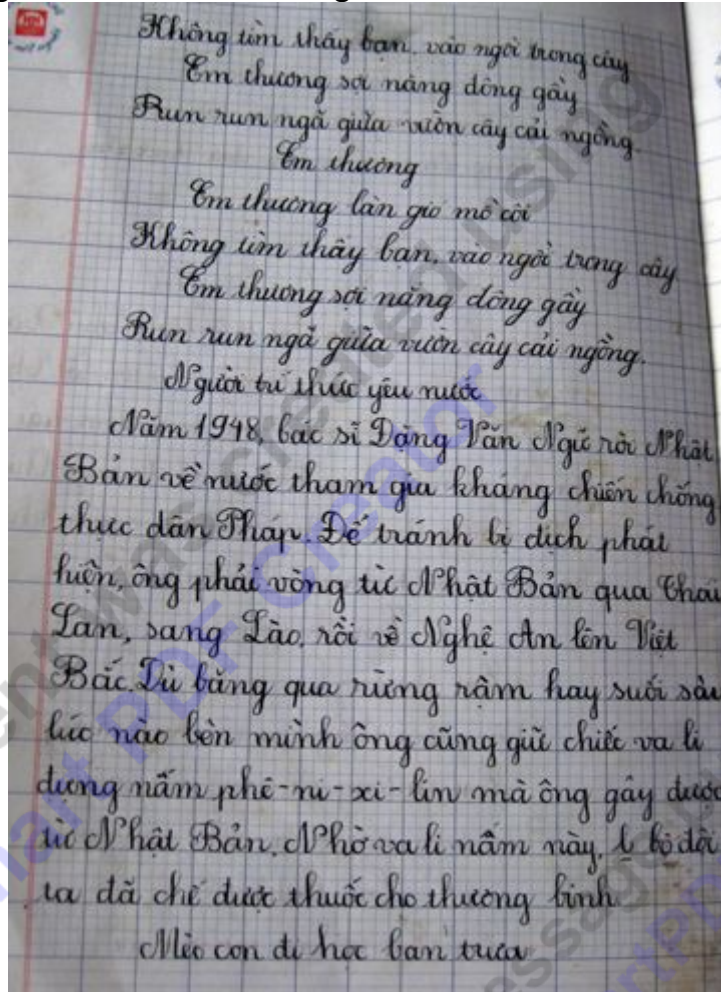 Không tìm thấy bạn, vào ngồi trong cây
Em thương sợi nắng đông gầy
Run run ngã giữa vườn cây cải ngồng.
Em thương
Em thương làn gió mồ côi
Không tìm thấy bạn, vào ngồi trong cây
Em thương sợi nắng đông gầy
Run run ngã giữa vườn cây cải ngồng.
Người trí thức yêu nước
Năm 1948, bác sĩ Đặng Văn Ngữ rời Nhật
Bản về nước tham gia kháng chiến chống
thực dân Pháp. Để tránh bị địch phát
hiện, ông phải vòng từ Nhật Bản qua Thái
Lan, sang Lào, rồi về Nghệ An lên Việt
Bắc. Dù băng qua rừng rậm hay suối sâu
lúc nào bên mình ông cũng giữ chiếc va li
đựng nấm phê-ni-xi-lin mà ông gây được
từ Nhật Bản. Nhờ va li nấm này, bộ đội
ta đã chế được thuốc cho thương binh
Mèo con đi học ban trưa